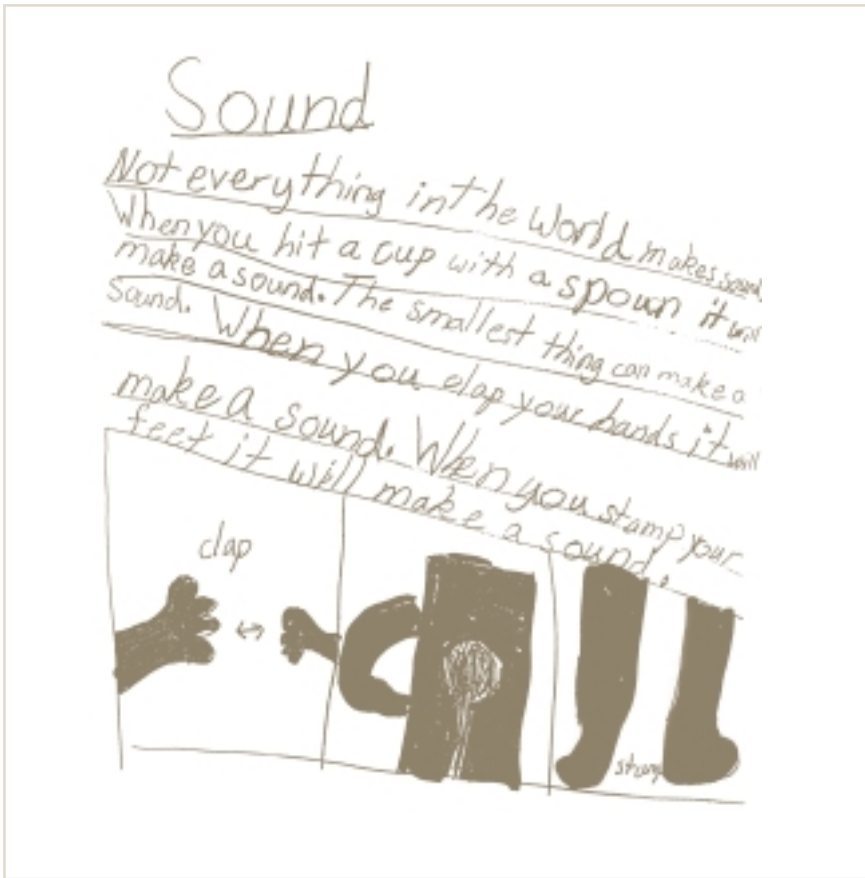 Sound
Not everything in the world makes sound.
When you hit a cup with a spoun it will
make a sound. The smallest thing can make a
sound. When you clap your hands it will
make a sound. When you stamp your
feet it will make a sound.
clap
stamp